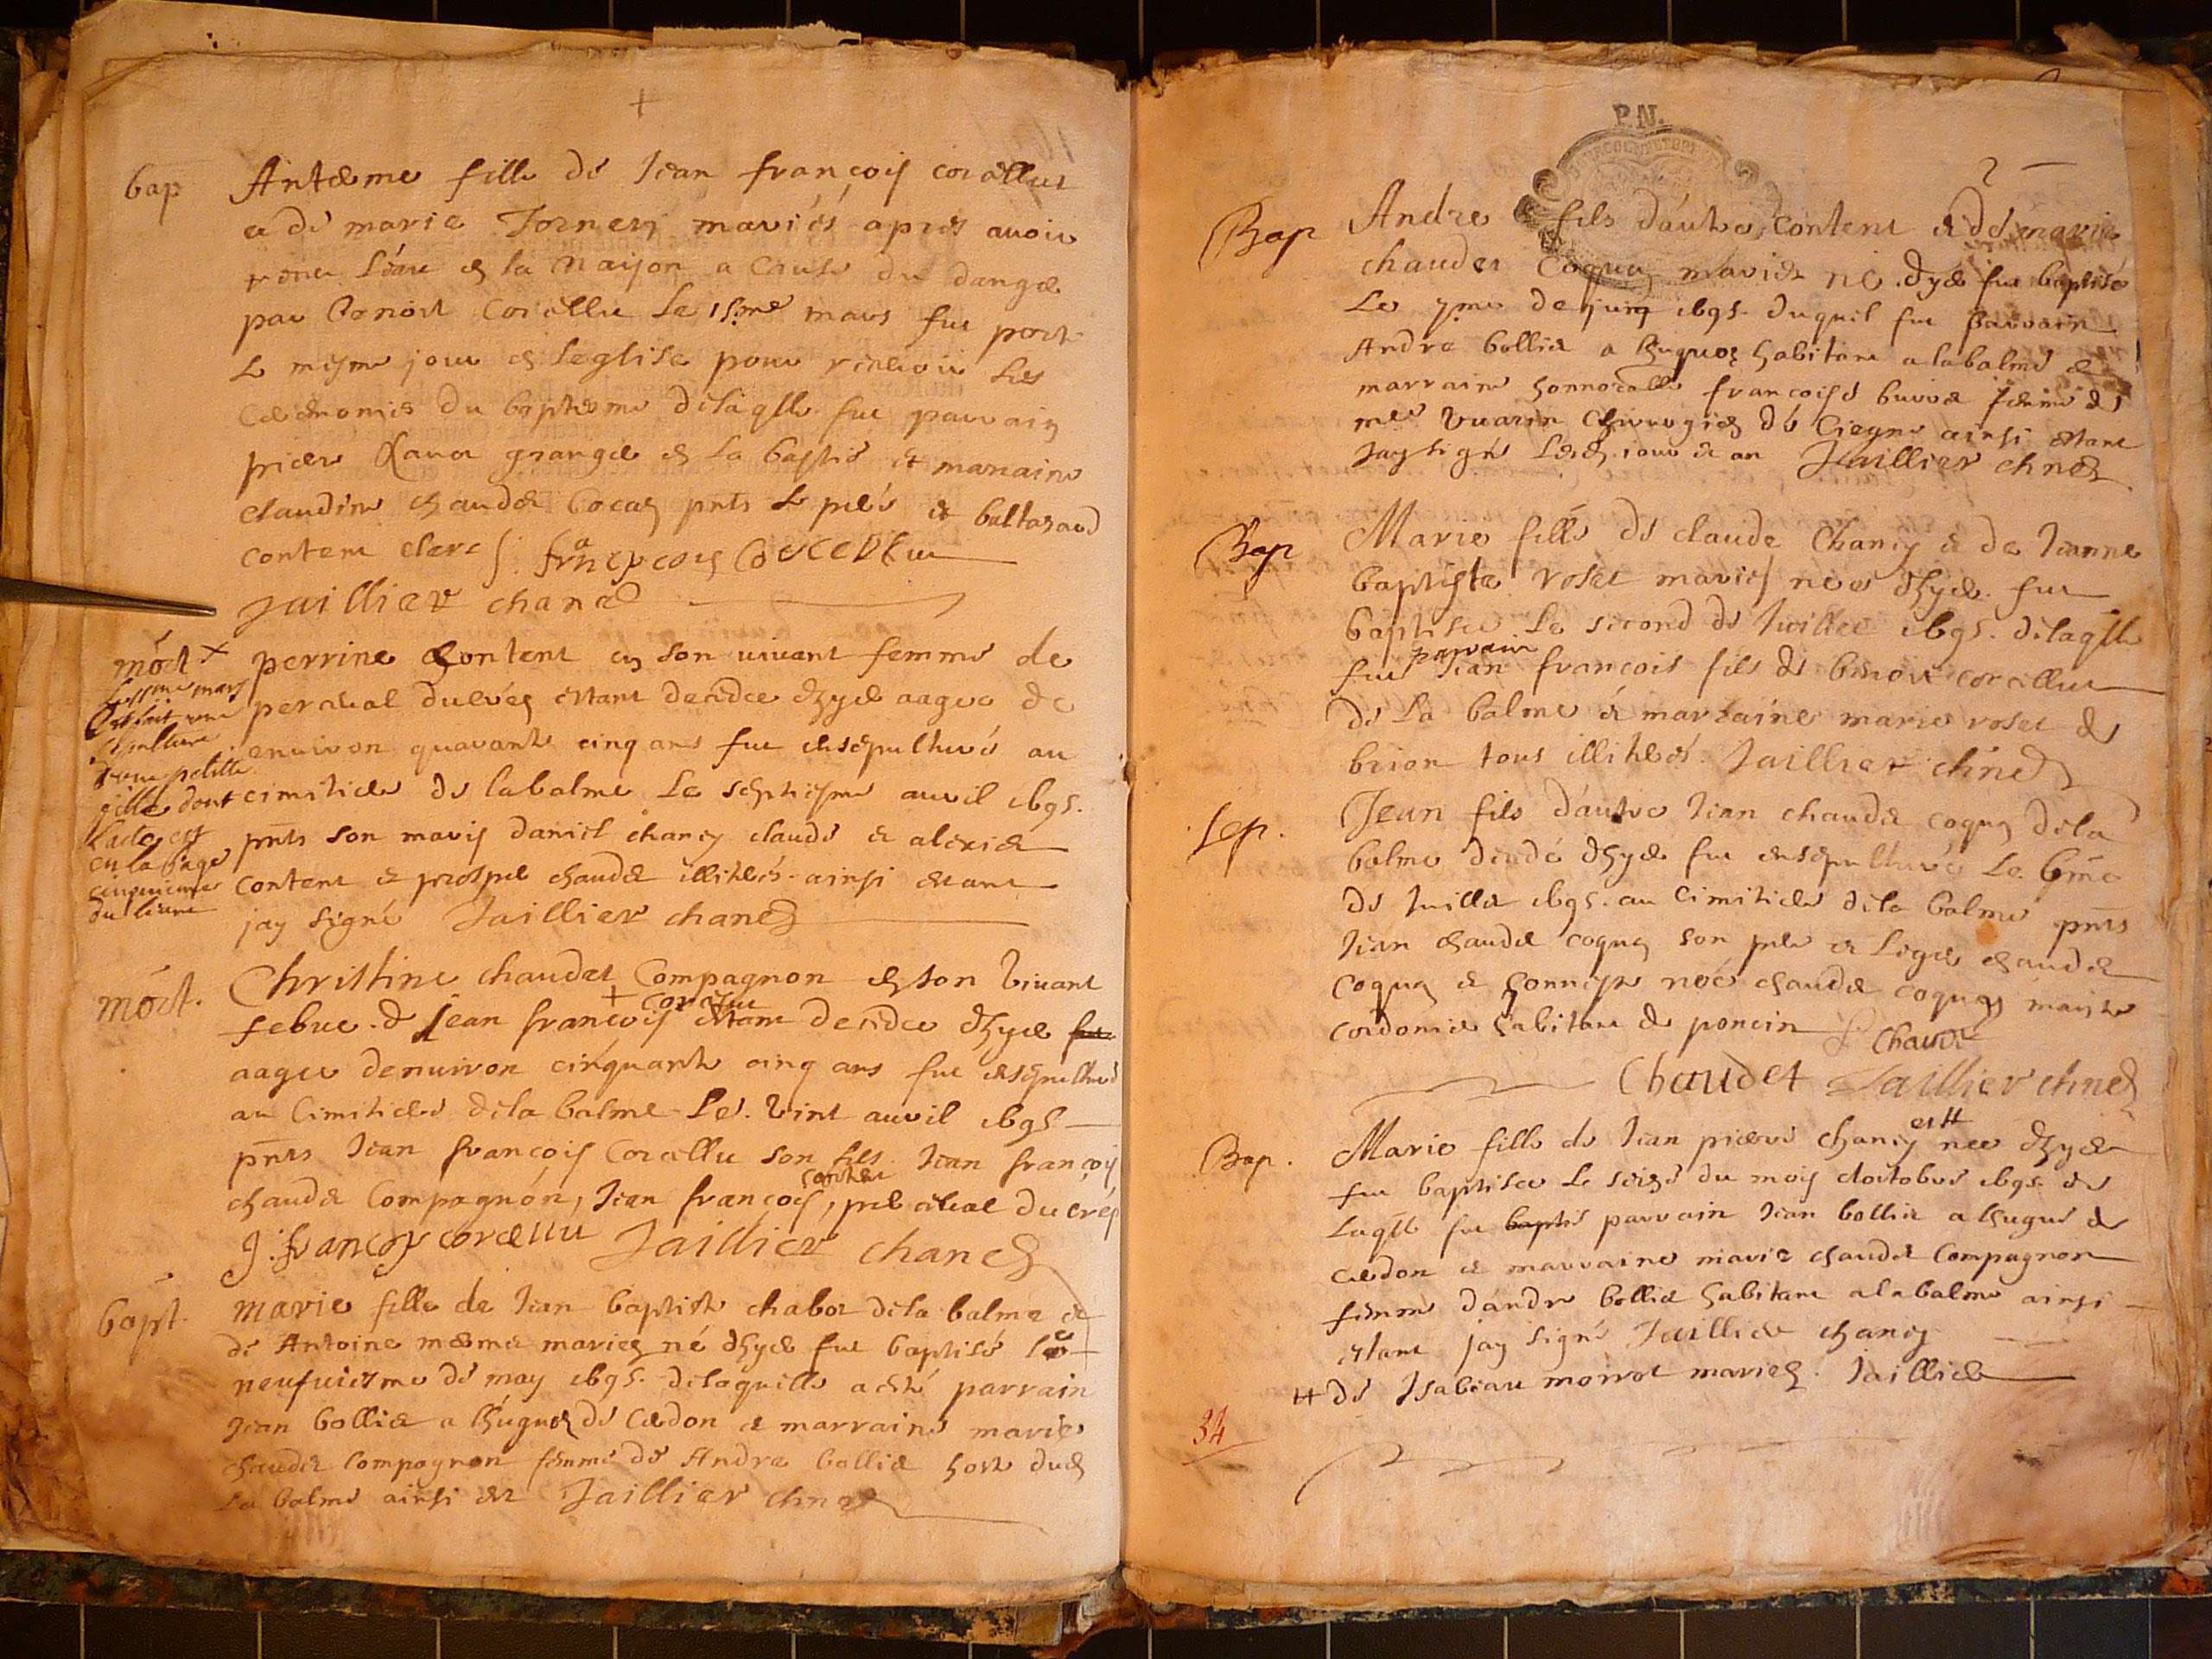 bap Antheme fille de Jean françois corcellut
et de marie Forneri mariés apres avoir
receu l'eau en la maison a cause du danger
par Benoit corcellu le 15.me mars fut porté
le mesme jour en l'eglise pour recevoir les
ceremonies du baptesme delaqlle fut parrain
claudine chaudet Cocaz pnts le pere et baltazard
content clerc françois Corcellut
Jaillier chane
mort + perrine Content en son vivant femme de
percival ducrés estant decedee dhyer aagee de
environ quarante cinq ans fut ensepulturé au
cimitiere de labalme le septiesme avril 1695.
pnts son mary daniel chaney claude et alexier
content et prosper chaudet illiterés. ainsi estant
jay signé Jaillier chane
sepulture
d'une petitte
fille dont
l'acte est
en la page
cinquieme
du livre
mort. Christine chaudet Compagnon en son vivant
febue. d Jean françois + corcellu estant decedee dhyer fut
aagee denviron cinquante cinq ans fut ensepulturé
au Cimitiere dela balme Le. vint avril 1695
pnts Jean françois Corcellu son fils Jean françois
chaudet Compagnon, Jean françois content, percival Ducrés
J. françois corcellu Jaillier chane
bapt. Marie fille de Jean baptiste chabot dela balme et
de Antoine mesme mariez né dhyer fut baptisé le
neufuiesme de may 1695. delaquelle a esté parrain
Jean bollier a hugues de Cerdon et marraine marie
chaudet Compagnon femme de Andre bollier
La balme ainsi est Jaillier chne
P.N.
Bap Andre fils d'autre content et de marie
chaudet Coquaz mariés né dhyer fut baptisé
Le 7.me de juin 1695. duquel fut parrain
Andre bollier a huguoz habitant a labalme et
marraine honnorable françoise femme de
me vuarin Chirurgien de ainsi estant
Jay signé les jour et an Jaillier chne
Bap Marie fille de claude Chaney et de Jeanne
baptiste roset mariés née dhyer. fut
baptisee le second de Juillet 1695. delaqlle
fut parrain Jean françois fils de benoit corcellut
de la balme et marraine marie roset de
brion tous illiterés. Jaillier chne
Sep. Jean fils d'autre Jean chaudet coquaz dela
balme decedé dhyer fut ensepulturé Le 6me
de Juillet 1695. au Cimitiere dela balme pnts
Jean chaudet coquaz son pere et Leger chaudet
Coquaz et honneste noé chaudet coquaz maistre
cordonnier habitant de poncin Chaudet
Chaudet Jaillier chne
Bap. Marie fille de Jean pierre chaney et # née dhyer
fut baptisee le seize du mois doctobre 1695 de
laqlle fut baptis parrain Jean bollier a hugue de
Cerdon et marraine marie chaudet Compagnon
femme dandre bollier habitant a labalme ainsi
estant jay signé Jaillier chaney
# de Isabeau moirot mariez. Jaillier
34